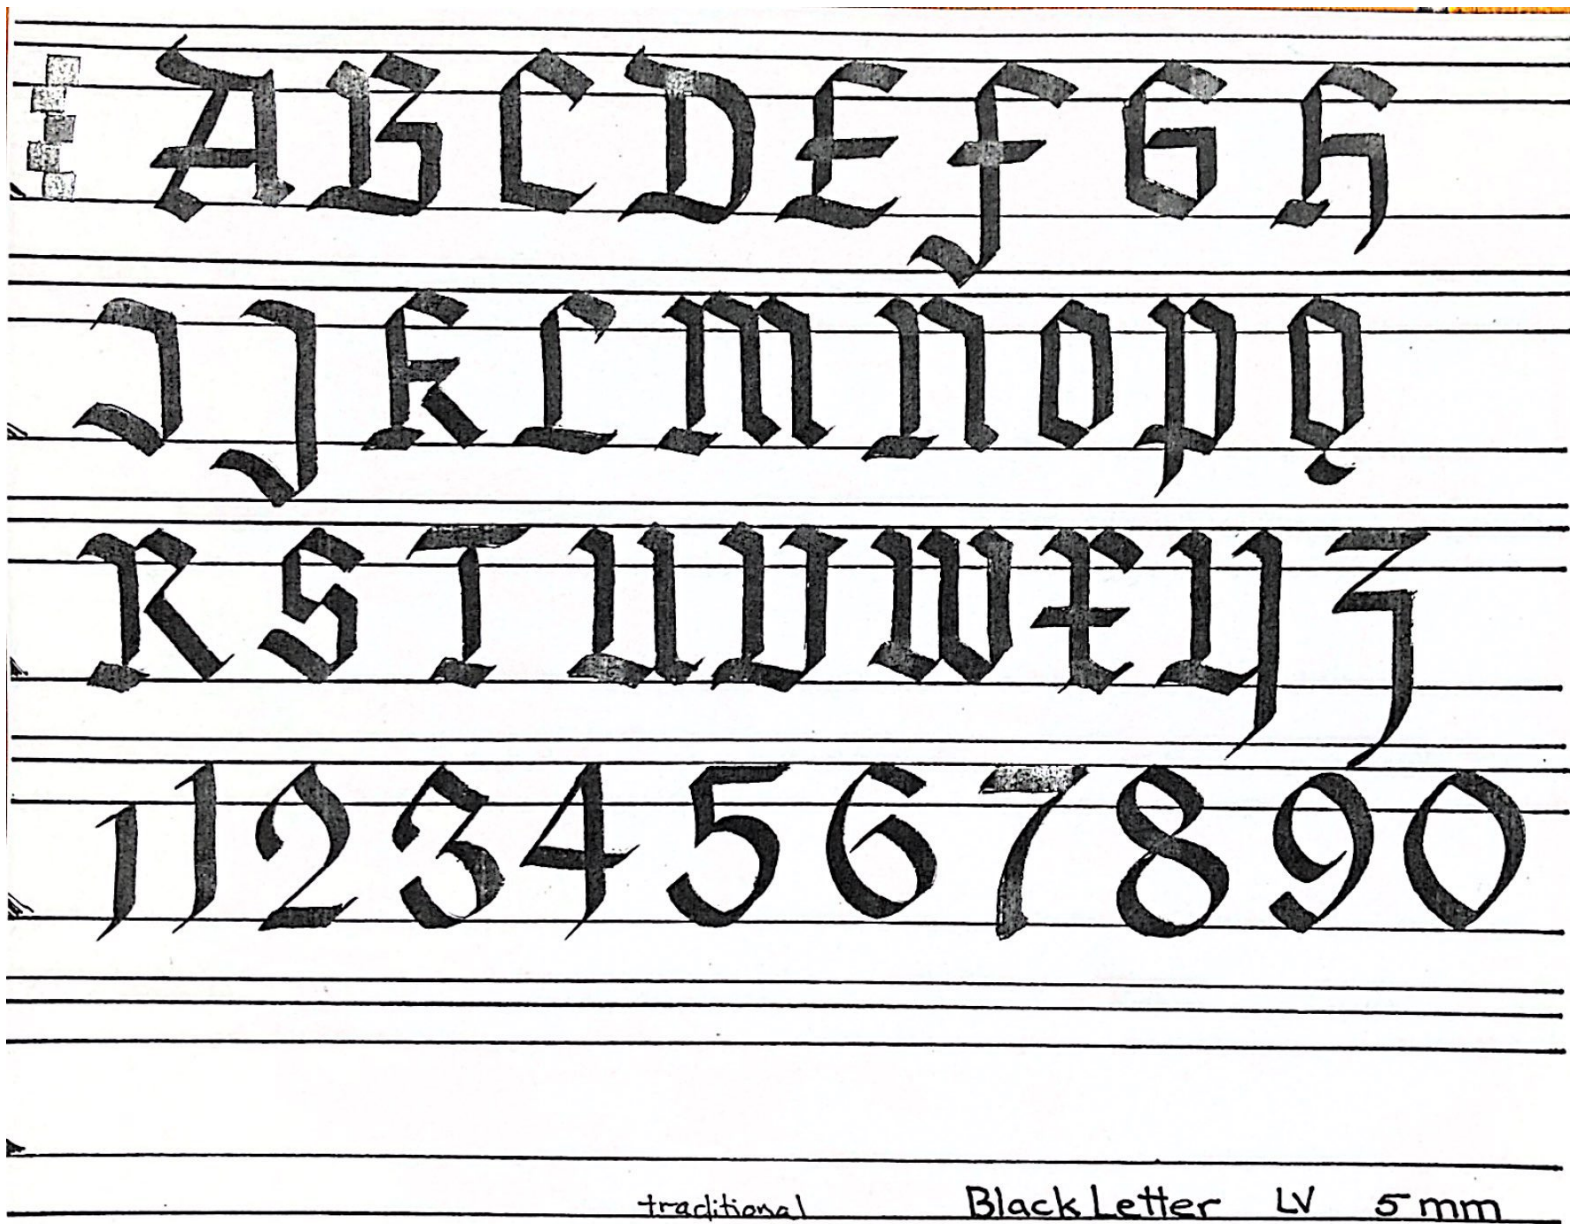 A B C D E F G H
I J K L M N O P Q
R S T U V W X Y Z
1 1 2 3 4 5 6 7 8 9 0
traditional Black Letter LV 5 mm